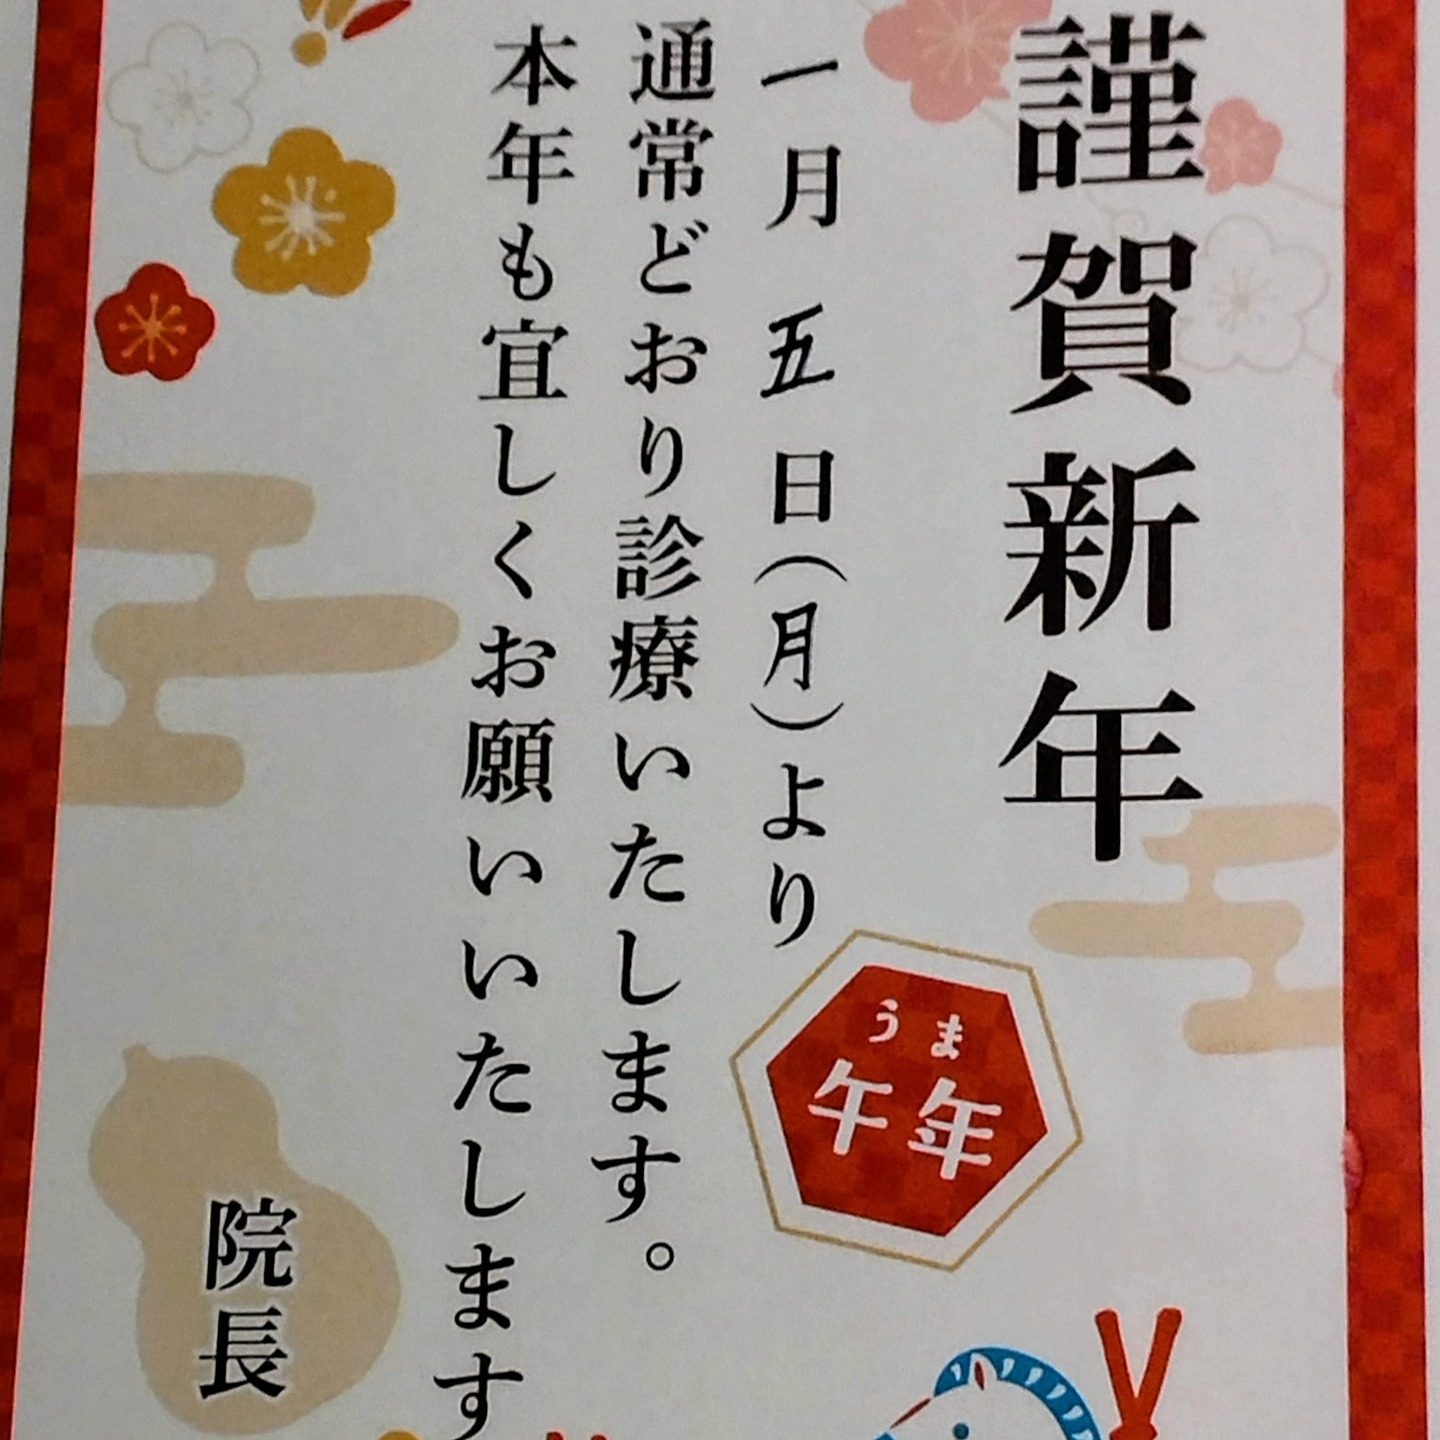 謹賀新年
一月五日(月)より
通常どおり診療いたします。
本年も宜しくお願いいたします
院長
うま
午年